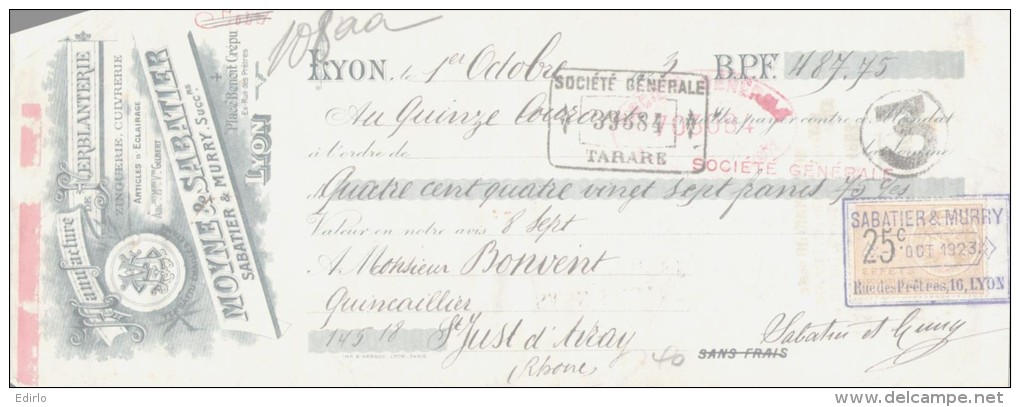 108aa
Manufacture
DE FERBLANTERIE
ZINGUERIE, CUIVRERIE
ARTICLES D'ECLAIRAGE
MOYNE & SABATIER
SABATIER & MURRY, SUCC.RS
Place Benoit Crépu
Ex-Rue des Prêtres
LYON
LYON, le 1er Octobre 3 B.P.F. 487.75
Au Quinze Courant payer contre ce Mandat
à l'ordre de
SOCIÉTÉ GÉNÉRALE
39684
TARARE
SOCIÉTÉ GÉNÉRALE
3
Quatre cent quatre vingt sept francs 75 ces
Valeur en notre avis 8 Sept
A Monsieur Bonvent
Quincaillier
14518 St Just d'Avray
(Rhone)
40
SANS FRAIS
SABATIER & MURRY
25c OCT 1923
EFFETS
Rue des Prêtres, 16, LYON
Sabatier et Murry
delcampe.net
Edirlo